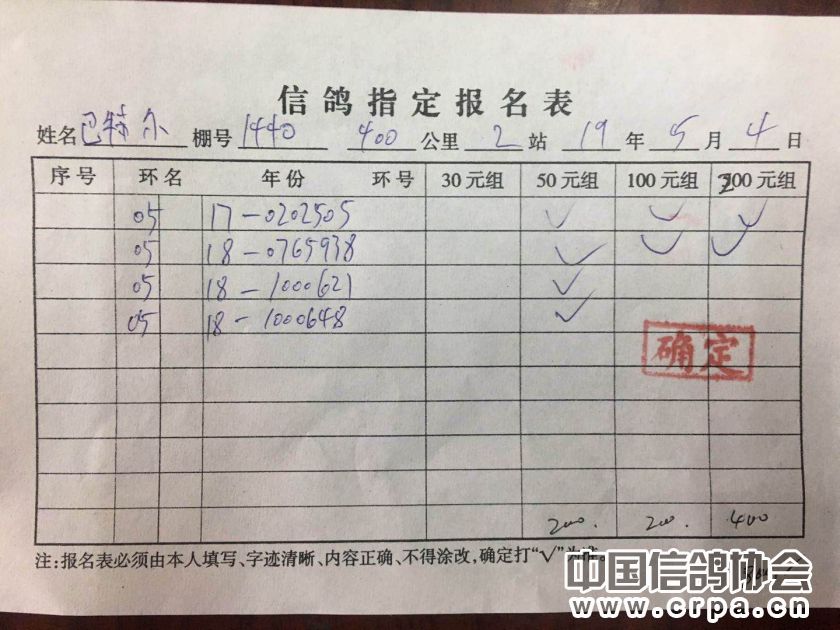 信鸽指定报名表
姓名 巴特尔 棚号 1440 400 公里 2 站 19 年 5 月 4 日
序号 环名 年份 环号 30元组 50元组 100元组 200元组
05 17-0202505 √ √ √
05 18-0765938 √ √ √
05 18-1000621 √
05 18-1000648 √
确定
200. 200. 400
注:报名表必须由本人填写、字迹清晰、内容正确、不得涂改,确定打“√”为
中国信鸽协会
www.crpa.cn